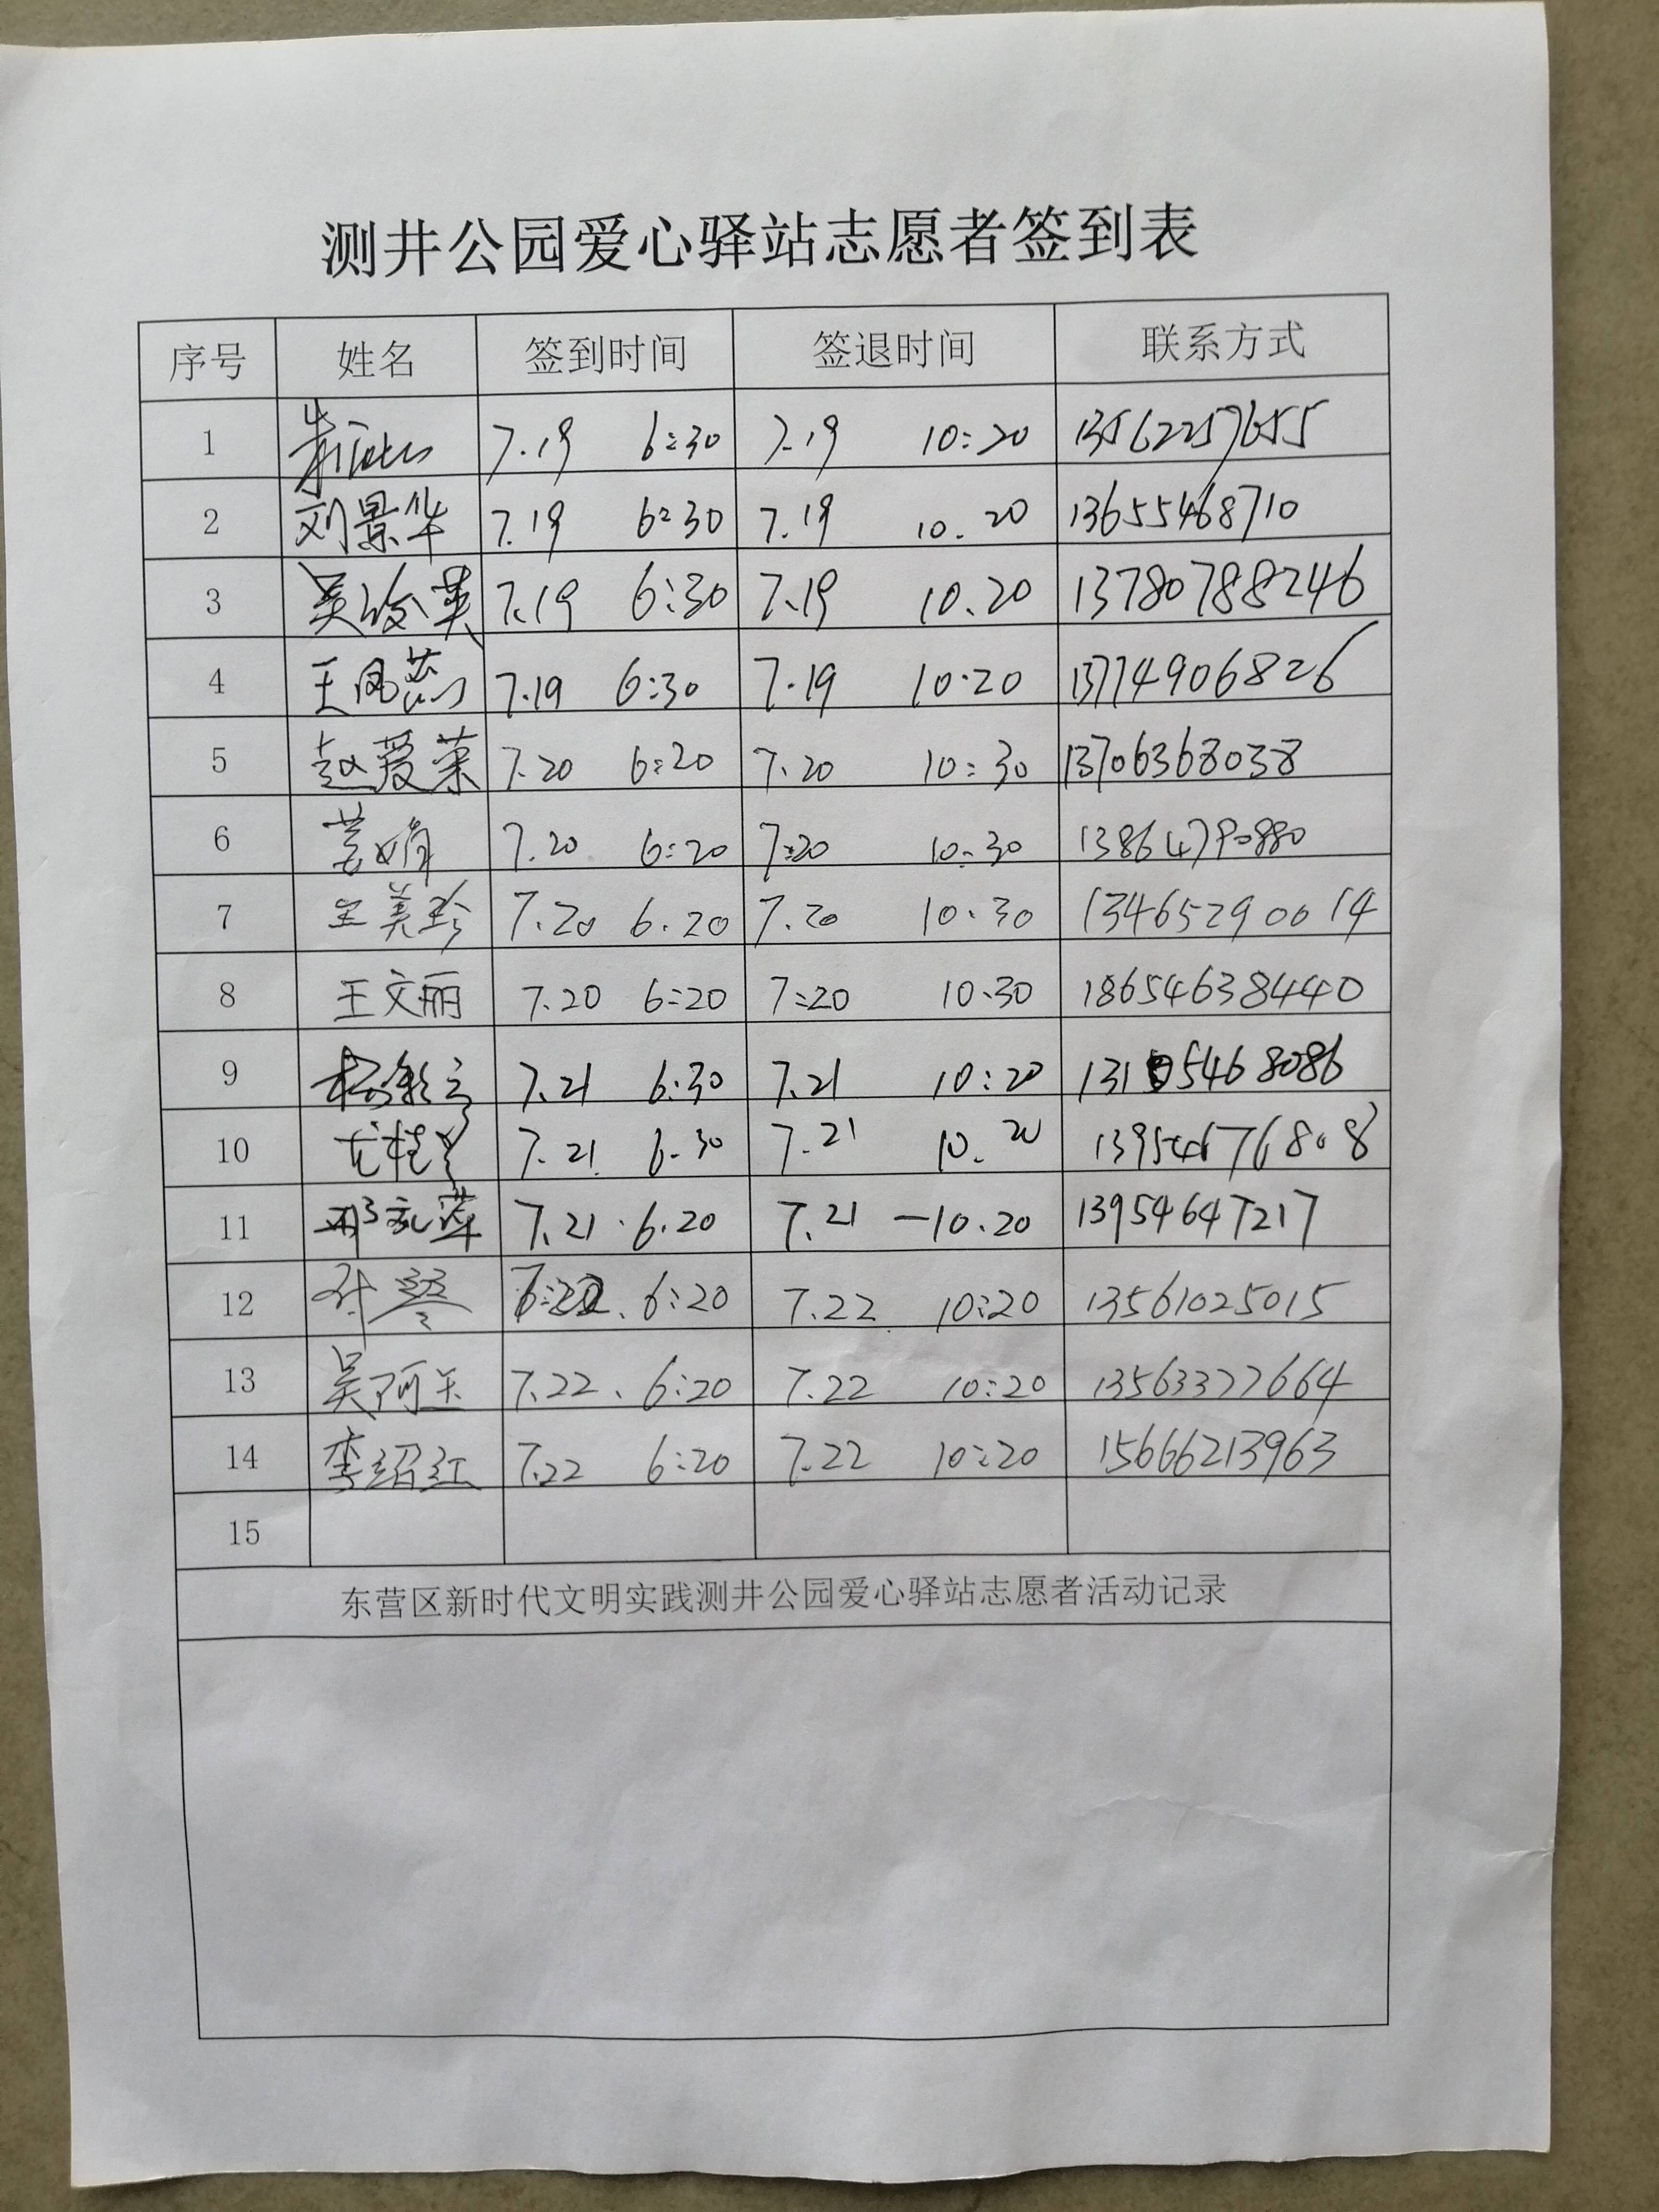 测井公园爱心驿站志愿者签到表
序号 姓名 签到时间 签退时间 联系方式
1 7.19 6:30 7.19 10:20 13562257655
2 刘景华 7.19 6:30 7.19 10.20 13655468710
3 吴改英 7.19 6:30 7.19 10.20 13780788246
4 王凤燕 7.19 6:30 7.19 10.20 13774906826
5 赵爱荣 7.20 6:20 7.20 10:30 13706368038
6 姜娟 7.20 6:20 7:20 10.30 13864790880
7 王美玲 7.20 6.20 7.20 10.30 13465290014
8 王文丽 7.20 6:20 7:20 10.30 18654638440
9 7.21 6:30 7.21 10:20 13105468086
10 7.21 6.30 7.21 10.20 13954676808
11 邢玉萍 7.21.6.20 7.21 —10.20 13954647217
12 6:20 7.22 10:20 13561025015
13 吴阿玉 7.22、6:20 7.22 10:20 13563327664
14 李绍红 7.22 6:20 7.22 10:20 15666213963
15
东营区新时代文明实践测井公园爱心驿站志愿者活动记录